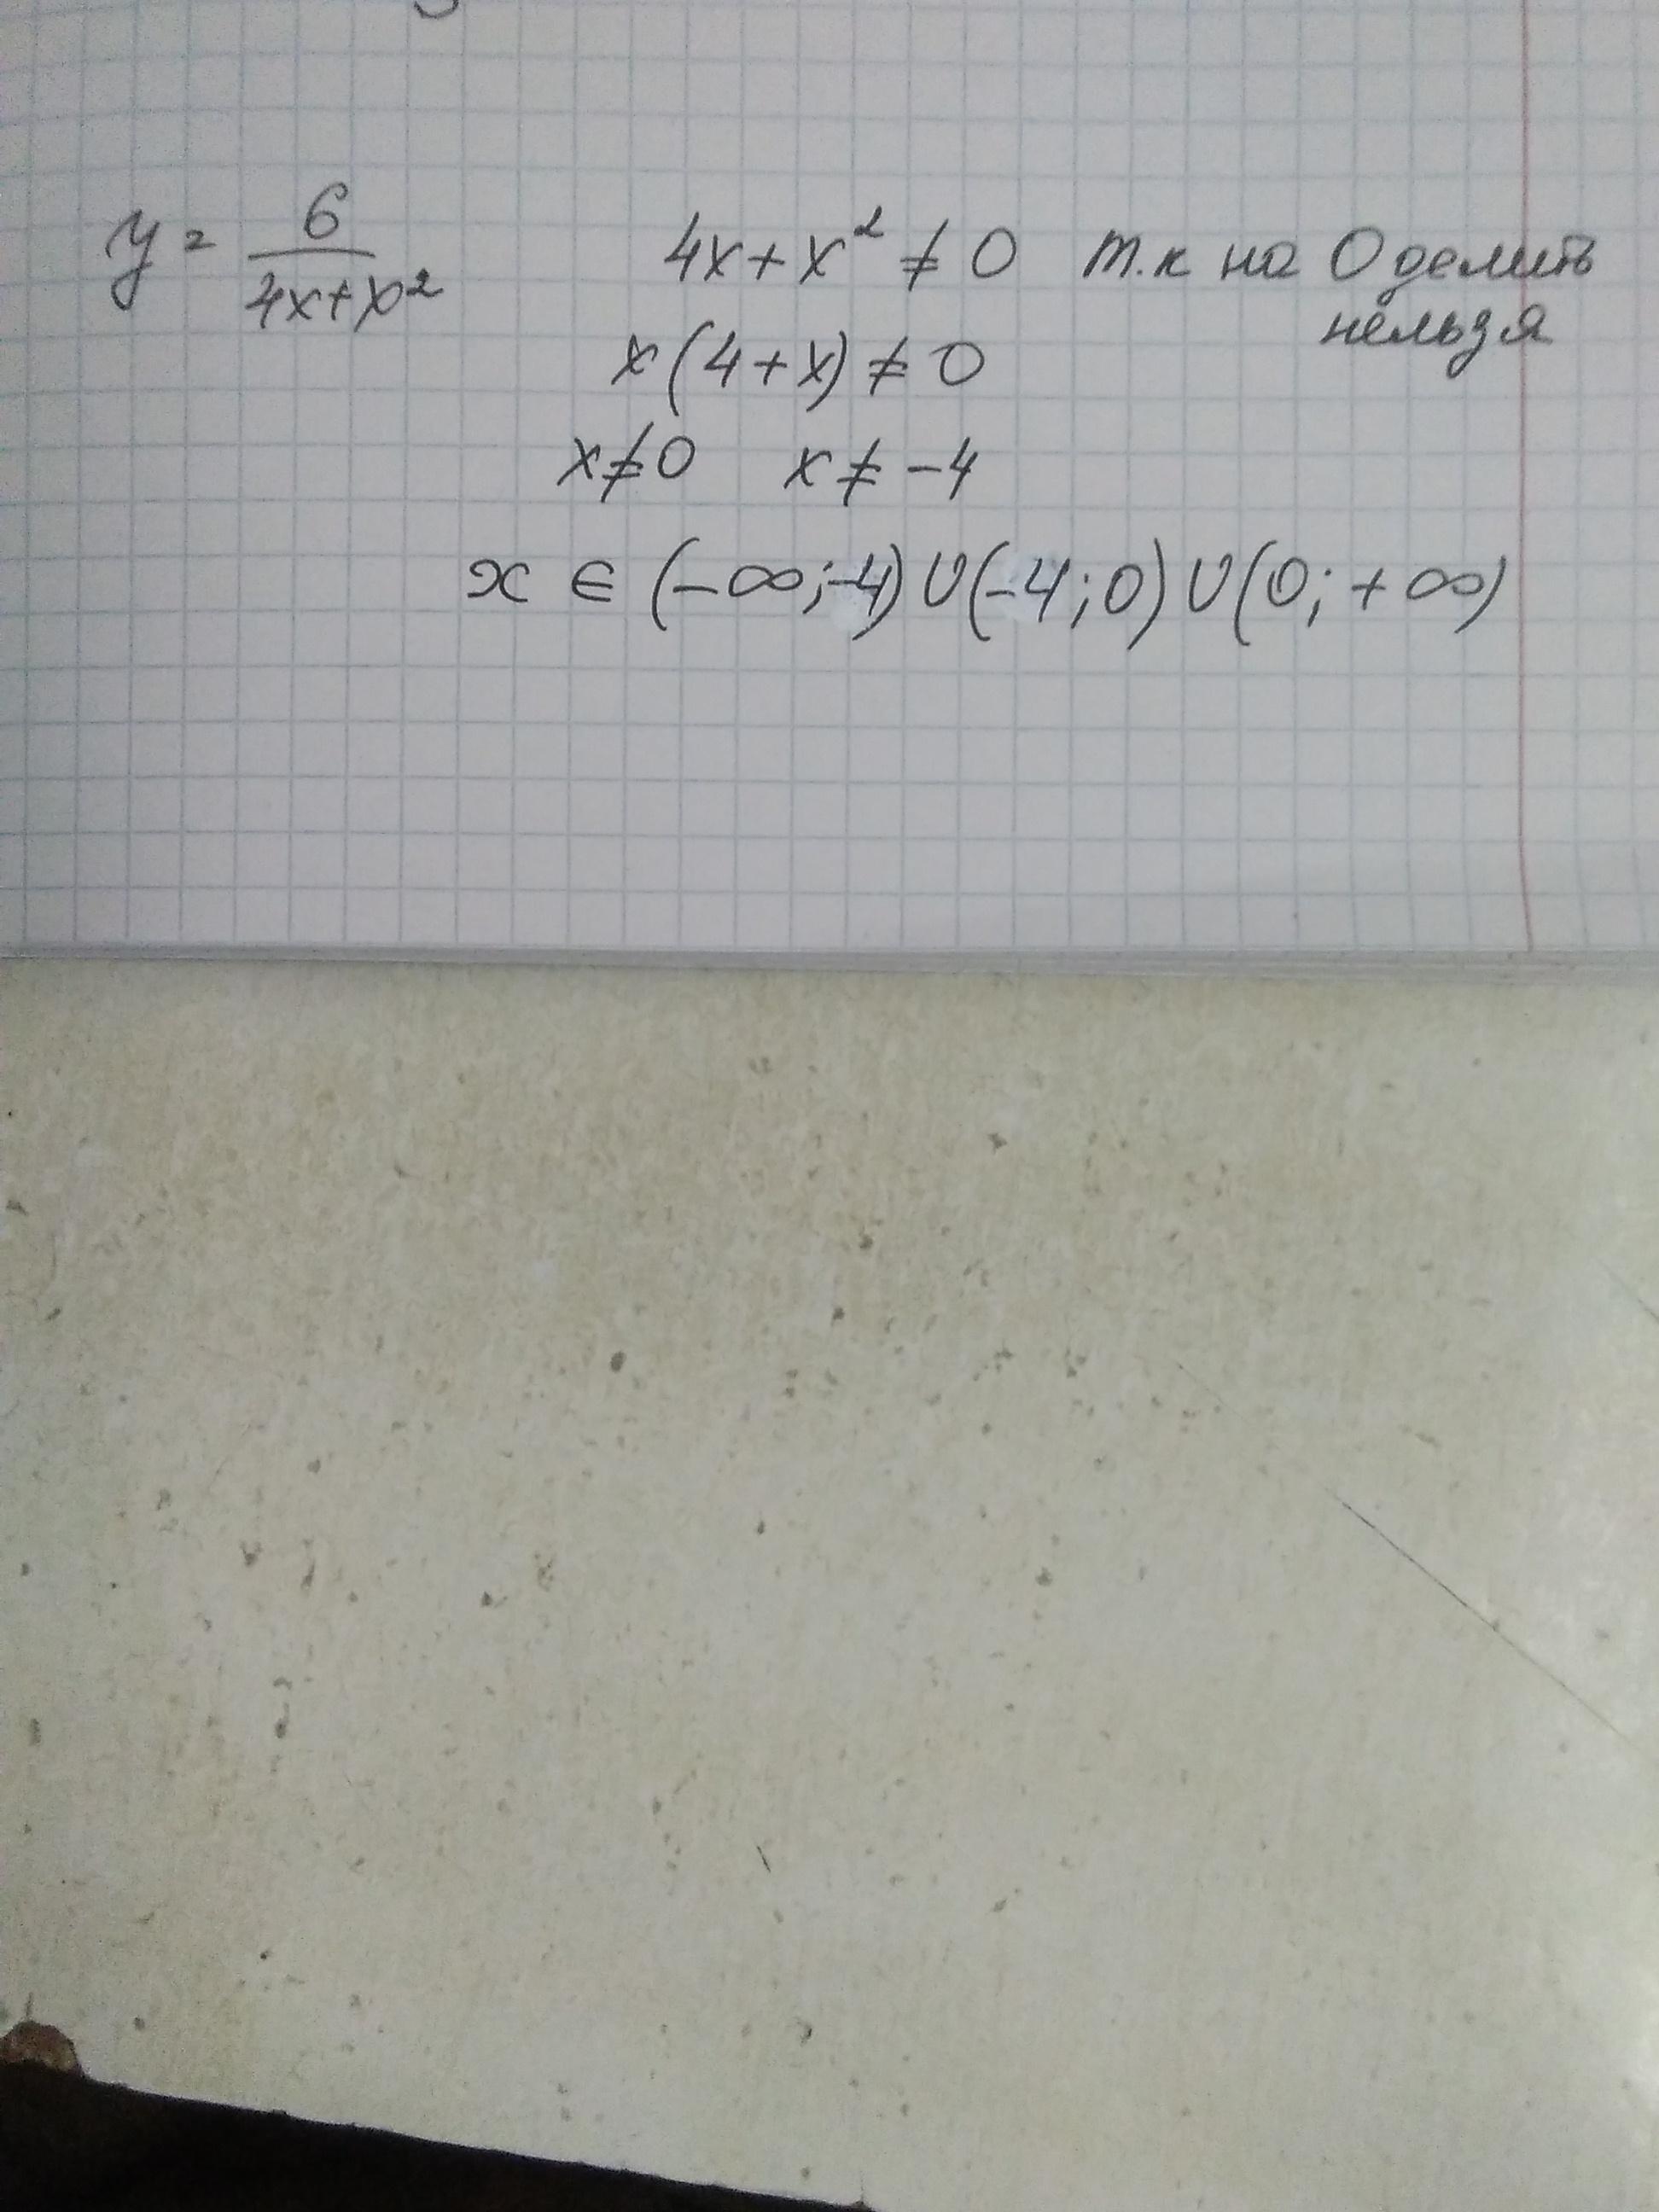 y = 6/(4x+x²)
4x+x² ≠ 0 т.к на 0 делить
нельзя
x(4+x) ≠ 0
x≠0 x ≠ -4
x ∈ (-∞;-4)∪(-4;0)∪(0;+∞)